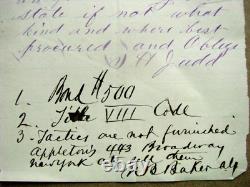 state if not what
kind and where best
procured and oblige
H Judd
1. Bond $500
2. Title VIII Code
3. Tactics are not furnished
Appletons 443 Broadway
newyork all them
B Baker alg